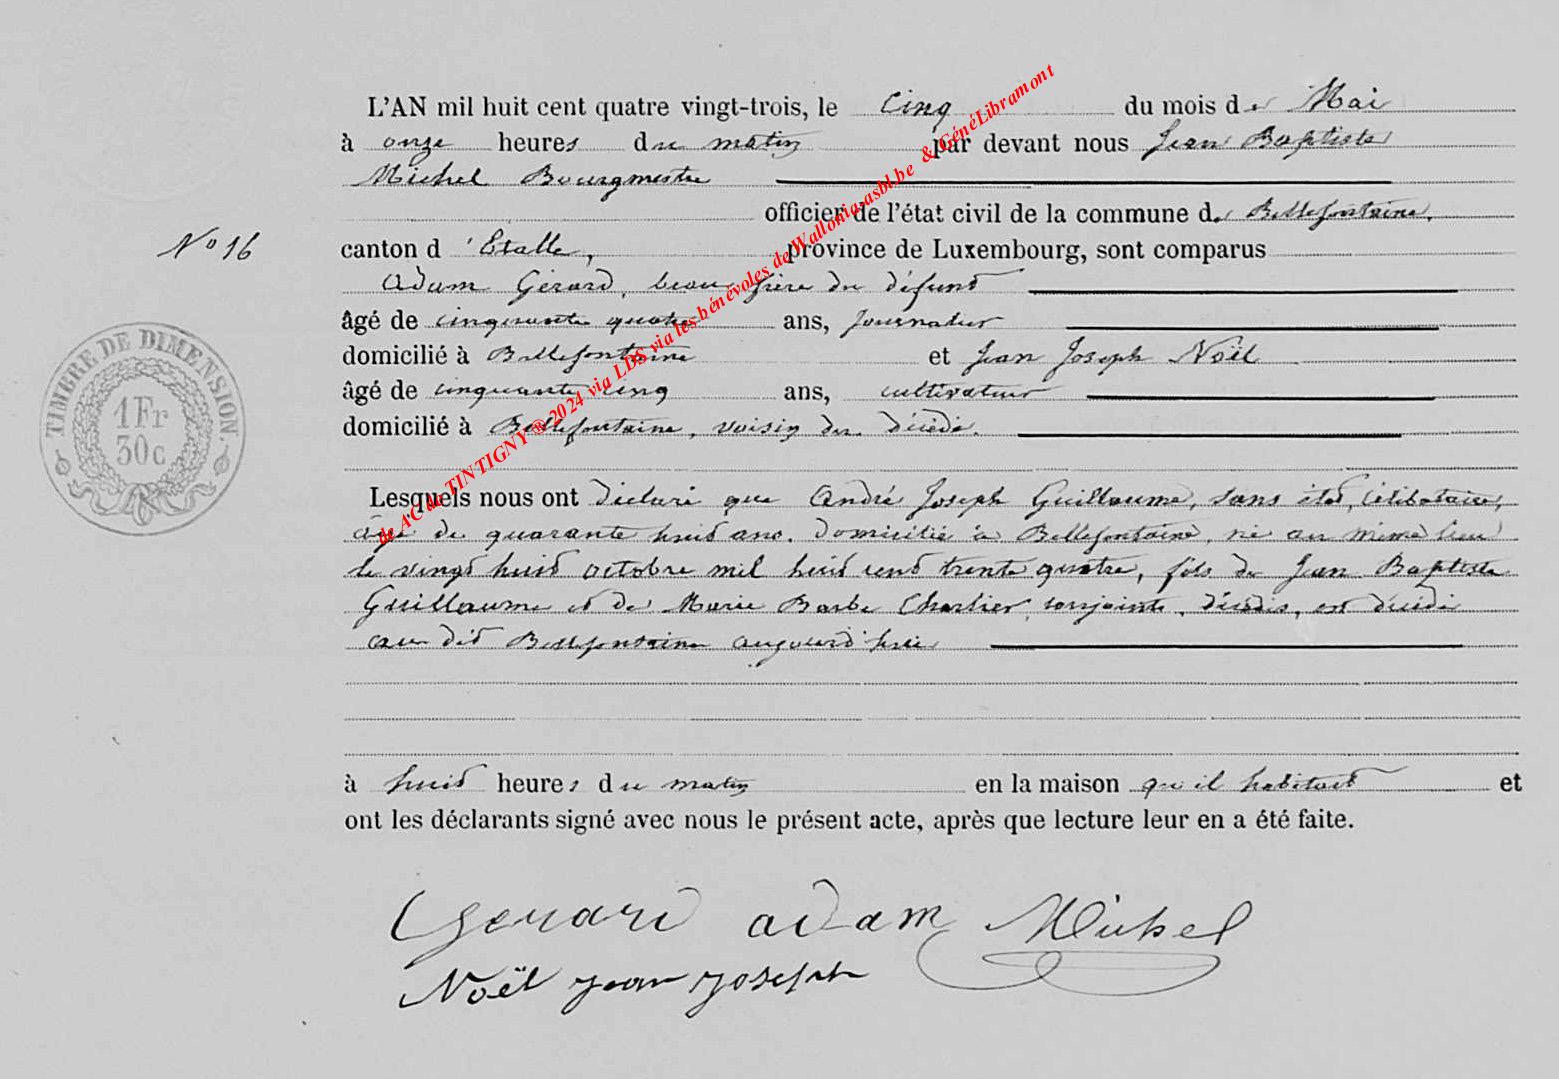 L'AN mil huit cent quatre vingt-trois, le cinq du mois de Mai
à onze heures du matin par devant nous Jean Baptiste
Michel Bourgmestre
officier de l'état civil de la commune de Bellefontaine,
N° 16 canton d'Etalle, province de Luxembourg, sont comparus
Adam Gérard, beau frère du défunt
âgé de cinquante quatre ans, journalier
domicilié à Bellefontaine et Jean Joseph Noël
âgé de cinquante cinq ans, cultivateur
domicilié à Bellefontaine, voisin du décédé.
Lesquels nous ont déclaré que André Joseph Guillaume, sans état, célibataire,
âgé de quarante huit ans. domicilié à Bellefontaine, né au même lieu
le vingt huit octobre mil huit cent trente quatre, fils de Jean Baptiste
Guillaume et de Marie Barbe Charlier, conjoints, décédés, est décédé
au dit Bellefontaine aujourd'hui
à huit heures du matin en la maison qu'il habitait et
ont les déclarants signé avec nous le présent acte, après que lecture leur en a été faite.
Gerard adam Michel
Noël jean joseph
TIMBRE DE DIMENSION.
1 Fr
30 c
de AC de TINTIGNY ® 2024 via LDS via les bénévoles de Wallonia-asbl.be & GénéLibramont